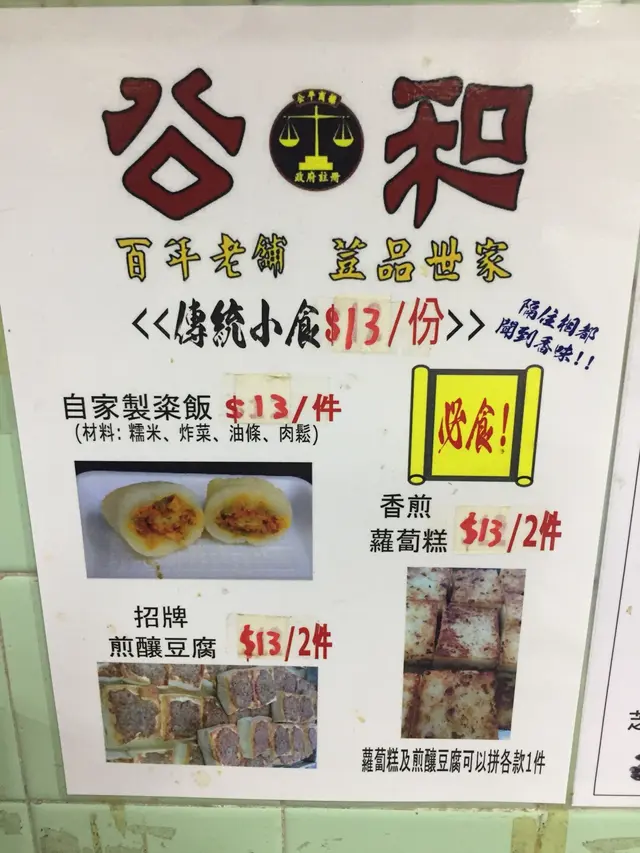 公和
公平商標
政府註冊
百年老舖 荳品世家
<<傳統小食$13/份>>
隔住梱都
聞到香味!!
自家製粢飯 $13/件
(材料: 糯米、炸菜、油條、肉鬆)
必食!
香煎
蘿蔔糕 $13/2件
招牌
煎釀豆腐 $13/2件
蘿蔔糕及煎釀豆腐可以拼各款1件